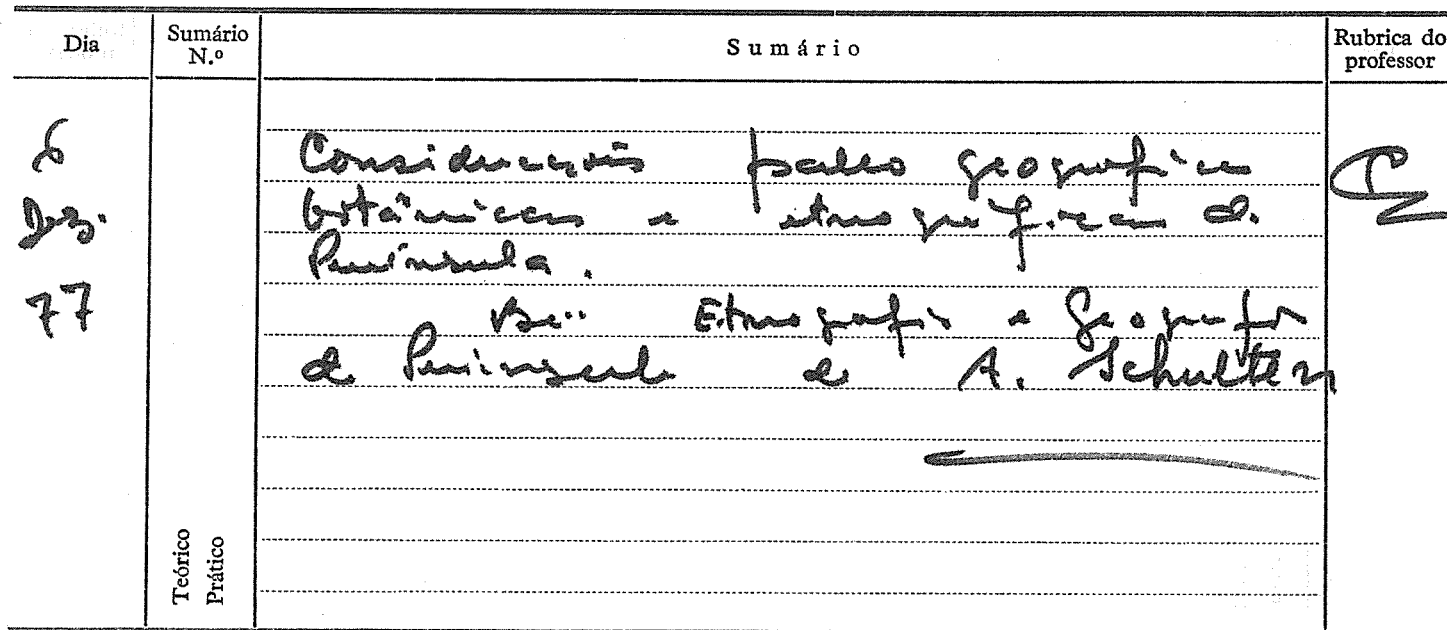 Dia
Sumário N.º
Sumário
Rubrica do professor
6
Dez.
77
Considerações paleo geográficas
botânicas e etnográficas da
Península.
Etnografia e Geografia
da Península de A. Schulten
Teórico
Prático